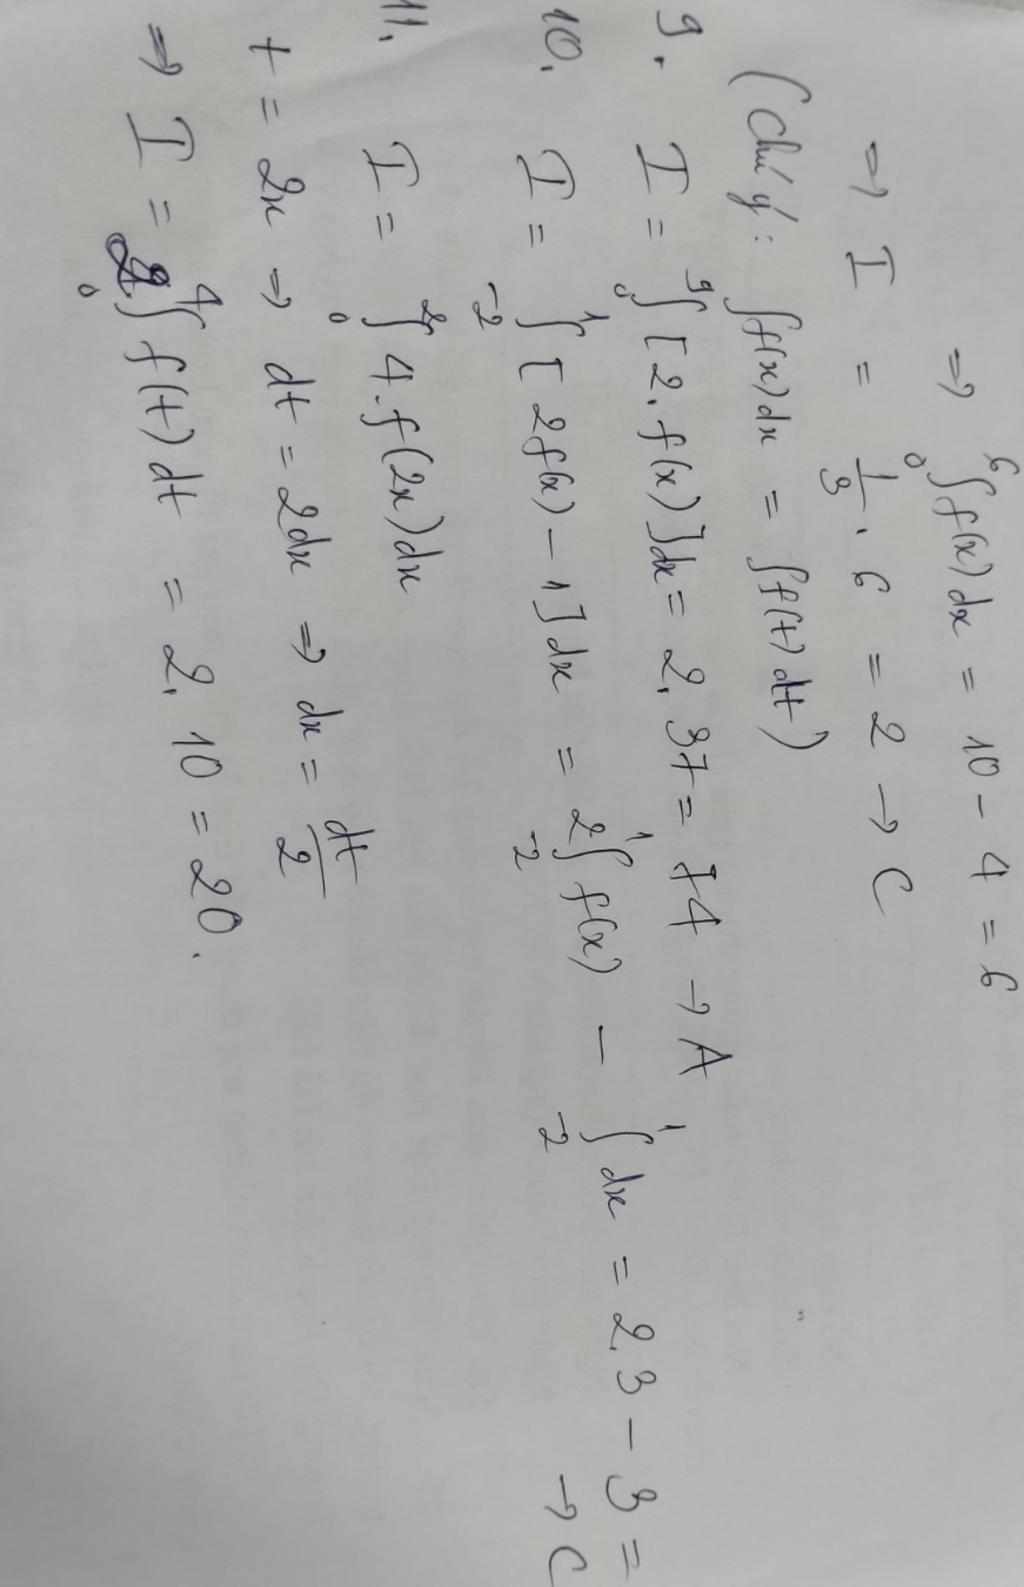 ⇒ ∫₀⁶ f(x)dx = 10 - 4 = 6
⇒ I = 1/3 . 6 = 2 → C
(Chú ý: ∫f(x)dx = ∫f(t)dt)
9. I = ∫₀⁹ [2.f(x)]dx = 2. 37 = 74 → A
10. I = ∫₋₂¹ [2f(x) - 1]dx = 2∫₋₂¹ f(x) - ∫₋₂¹ dx = 2.3 - 3 =
→ C
11. I = ∫₀² 4.f(2x)dx
t = 2x ⇒ dt = 2dx ⇒ dx = dt/2
⇒ I = 2.∫₀⁴ f(t)dt = 2. 10 = 20.